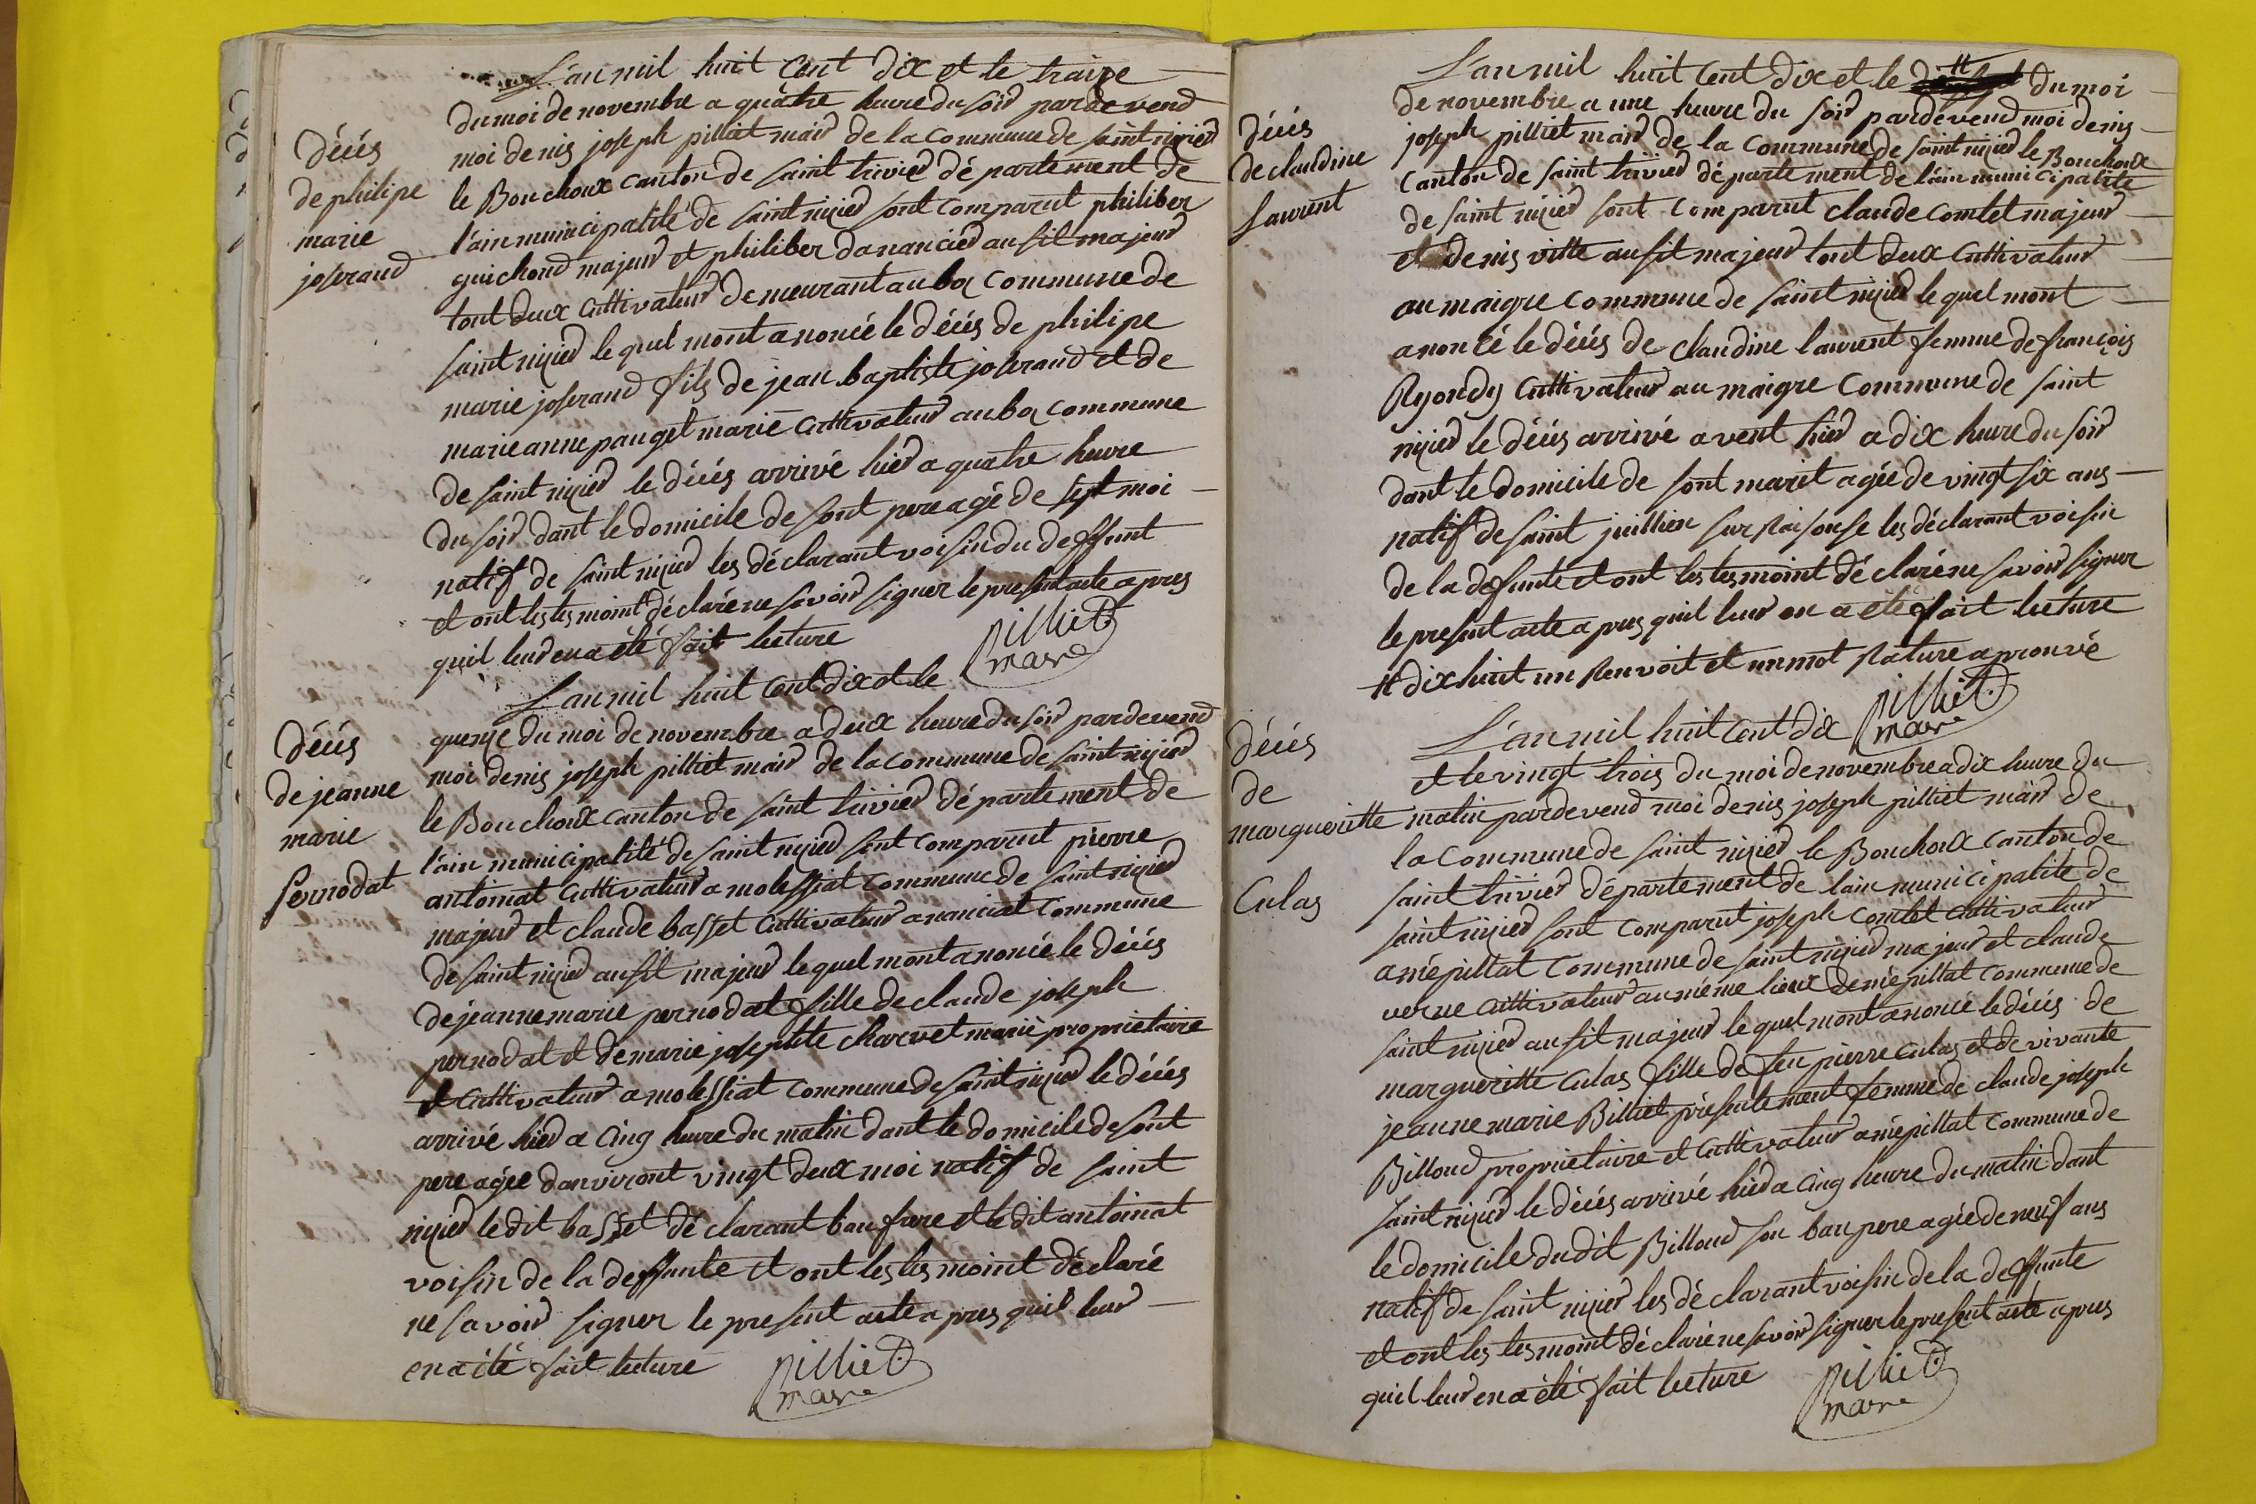 L'an mil huit Cent dix et le traize
du moi de novembre a quatre heure du soir pardevend
moi denis joseph pilliet mair de la commune de saint nizier
le Bouchoux canton de saint trivier département de
l'ain municipalité de saint nizier sont comparut philiber
guichond majeur et philiber dananciер ausit majeur
tout deux cultivateur demeurant au boz commune de
saint nizier le quel mont anoncé le décés de philipe
marie joserand fils de jean baptiste joserand et de
marie anne pauget marié cultivateur au boz commune
de saint nizier le décés arrivé hier a quatre heure
du soir dant le domicile de sont pere agé de sept moi
natif de saint nizier les déclarant voisin du deffunt
et ont les tesmoint déclaré ne savoir signer le present acte apres
quil leur en a été fait lecture
Pilliet
maire
décés
de philipe
marie
joserand
L'an mil huit Cent dix et le
quenze du moi de novembre a deux heure du soir pardevend
moi denis joseph pilliet mair de la commune de saint nizier
le Bouchoux canton de saint trivier département de
l'ain municipalité de saint nizier sont comparut pierre
antoinat cultivateur a molissiat commune de saint nizier
majeur et claude basset cultivateur a nanciat commune
de saint nizier ausit majeur le quel mont anoncé le décés
de jeanne marie pernodat fille de claude joseph
pernodat et de marie josephte charvet marié proprietaire
et cultivateur a molessiat commune de saint nizier le décés
arrivé hier a cinq heure du matin dant le domicile de sont
pere agée danviront vingt deux moi natif de saint
nizier le dit basset déclarant bau frere et le dit antoinat
voisin de la deffunte et ont les tesmoint déclaré
ne savoir signer le present acte apres quil leur
en a été fait lecture
Pilliet
maire
Décés
de jeanne
marie
Pernodat
L'an mil huit Cent dix et le # du moi
de novembre a une heure du soir pardevend moi denis
joseph pilliet mair de la commune de saint nizier le Bouchoux
canton de saint trivier département de l'ain municipalité
de saint nizier sont comparut claude comtet majeur
et denis vitte ausit majeur tout deux cultivateur
au maigre commune de saint nizier le quel mont
anoncé le décés de claudine laurent femme de françois
Ryondy cultivateur au maigre commune de saint
nizier le décés arrivé avent hier a dix heure du soir
dant le domicile de sont marit agée de vingt six ans
natif de saint juillien sur Raisouse les déclarant voisin
de la defunte et ont les tesmoint déclaré ne savoir signer
le present acte apres quil leur en a été fait lecture
# dix huit un Renvoit et un mot Rature aprouvé
Pilliet
maire
décés
de claudine
Laurent
L'an mil huit Cent dix
et le vingt trois du moi de novembre a dix heure du
matin pardevend moi denis joseph pilliet mair de
la commune de saint nizier le Bouchoux canton de
saint trivier département de lain municipalité de
saint nizier sont comparut joseph comtet cultivateur
a mépillat commune de saint nizier majeur et claude
verne cultivateur au méme lieux de mépillat commune de
saint nizier ausit majeur le quel mont anoncé le décés de
margueritte Culas fille de feu pierre culas et de vivante
jeanne marie Billiet présentement femme de claude joseph
Billoud proprietaire et cultivateur a mépillat commune de
saint nizier le décés arrivé hier a cinq heure du matin dant
le domicile du dit Billoud son bau pere agée de neuf ans
natif de saint nizier les déclarant voisin de la deffunte
et ont les tesmoint déclaré ne savoir signer le present acte apres
quil leur en a été fait lecture
Pilliet
maire
Décés
de
margueritte
Culas